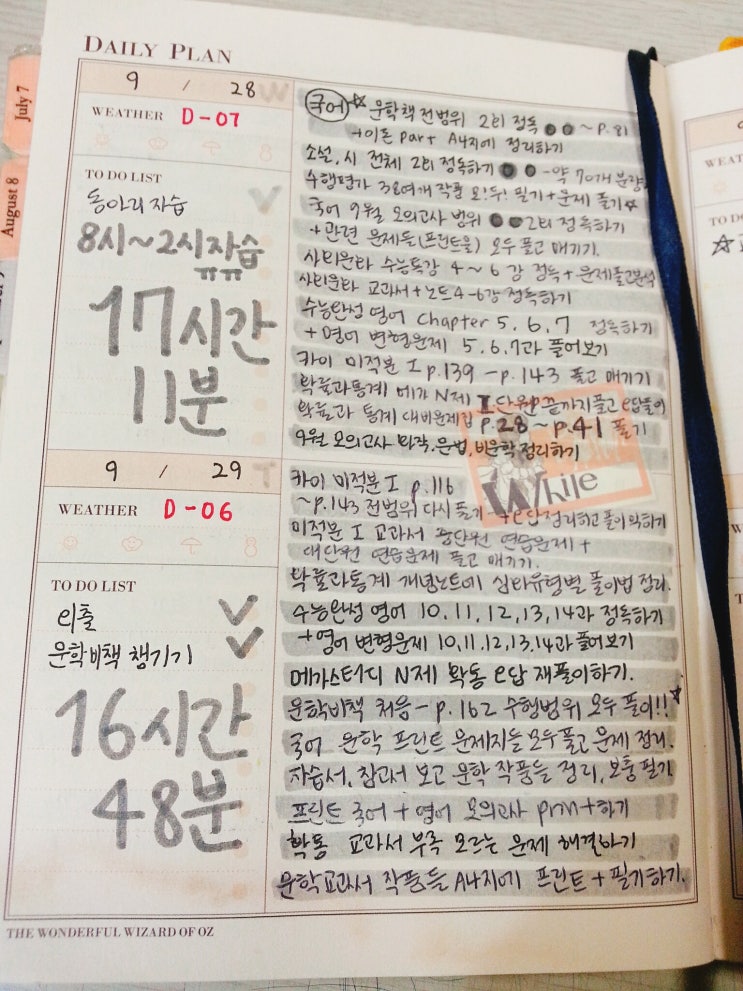 DAILY PLAN
July 7
August 8
9 / 28 W
WEATHER D-07
TO DO LIST
동아리 자습
8시~2시자습
ㅠㅠ
17시간
11분
국어 ☆ 문학책 전범위 2회 정독 ●● ~ p.81
→이론 part A4지에 정리하기
소설, 시 전체 2회 정독하기 ●● -약 70개 분량
수행평가 38여개 작품 오!투! 필기+문제 풀기☆
국어 9월 모의고사 범위 ●●2회 정독하기
+관련 문제들(프린트물) 모두 풀고 매기기.
사회문화 수능특강 4~6강 정독+문제풀고분석
사회문화 교과서+노트4-6강 정독하기
수능완성 영어 Chapter 5.6.7 정독하기
+영어 변형문제 5.6.7과 풀어보기
카이 미적분 I p.139 -p.143 풀고 매기기
확률과통계 메가 N제 II단원 끝까지풀고 e답풀이
확률과 통계 대비문제집 p.28~p.41 풀기
9월 모의고사 화작,문법,비문학정리하기
While
9 / 29 T
WEATHER D-06
TO DO LIST
외출
문학비책 챙기기
16시간
48분
카이 미적분 I p.116
~p.143 전범위 다시풀기 → e답정리하고 풀이익히기
미적분 I 교과서 중단원 연습문제+
대단원 연습문제 풀고 매기기.
확률과통계 개념노트에 심화유형별 풀이법 정리.
수능완성 영어 10,11,12,13,14과 정독하기
+영어 변형문제 10,11,12,13,14과 풀어보기
메가스터디 N제 확통 e답 재풀이하기.
문학비책 처음-p.162 수행범위 모두 풀이!!☆
국어 문학 프린트 문제지들 모두풀고 문제 정리.
자습서,참고서 보고 문학 작품들 정리, 보충필기
프린트 국어+영어 모의고사 print하기
확통 교과서 부족 모르는 문제 해결하기
문학교과서 작품들 A4지에 프린트+필기하기.
THE WONDERFUL WIZARD OF OZ